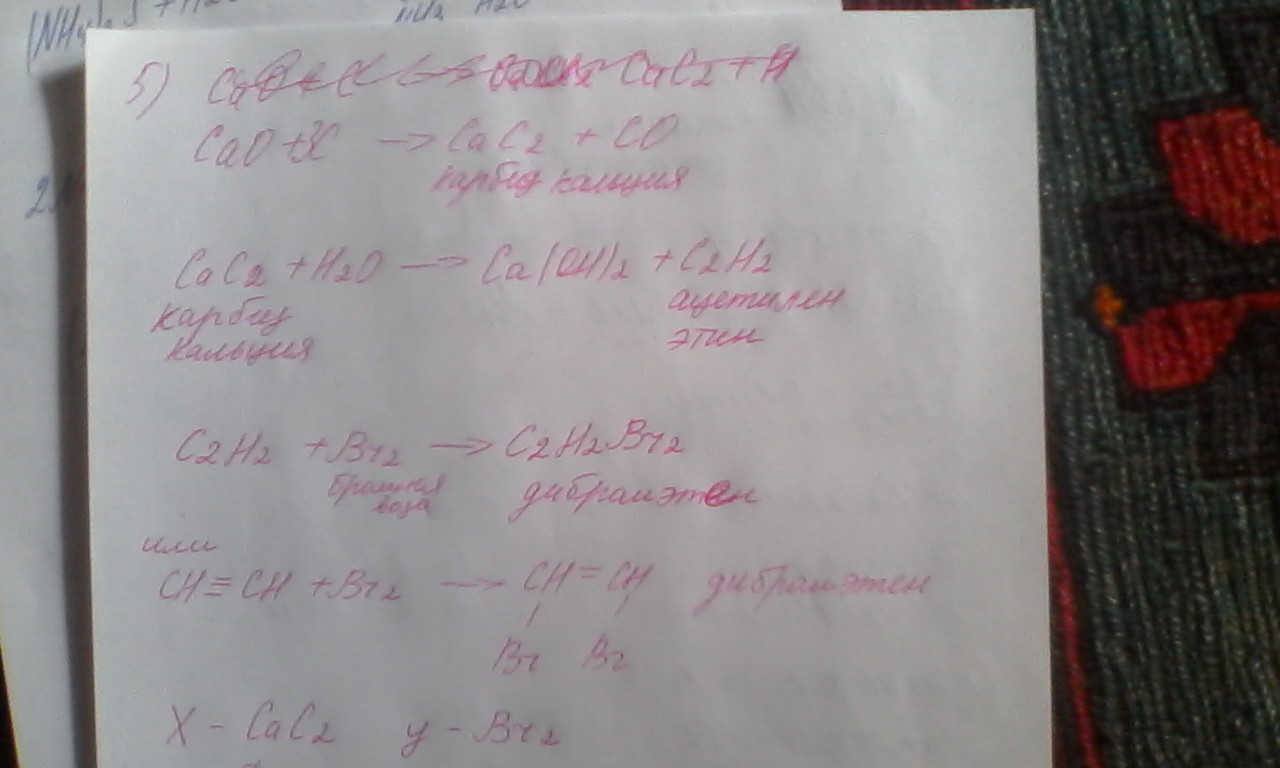 (NH4)2S + H2
NH3 H2O
2
5)
CaC2 + H
CaO + 3C → CaC2 + CO
карбид кальция
CaC2 + H2O → Ca(OH)2 + C2H2
карбид ацетилен
кальция этин
C2H2 + Br2 → C2H2Br2
бромная дибромэтен
вода
или
CH≡CH + Br2 → CH=CH дибромэтен
Br Br
X - CaC2 y - Br2